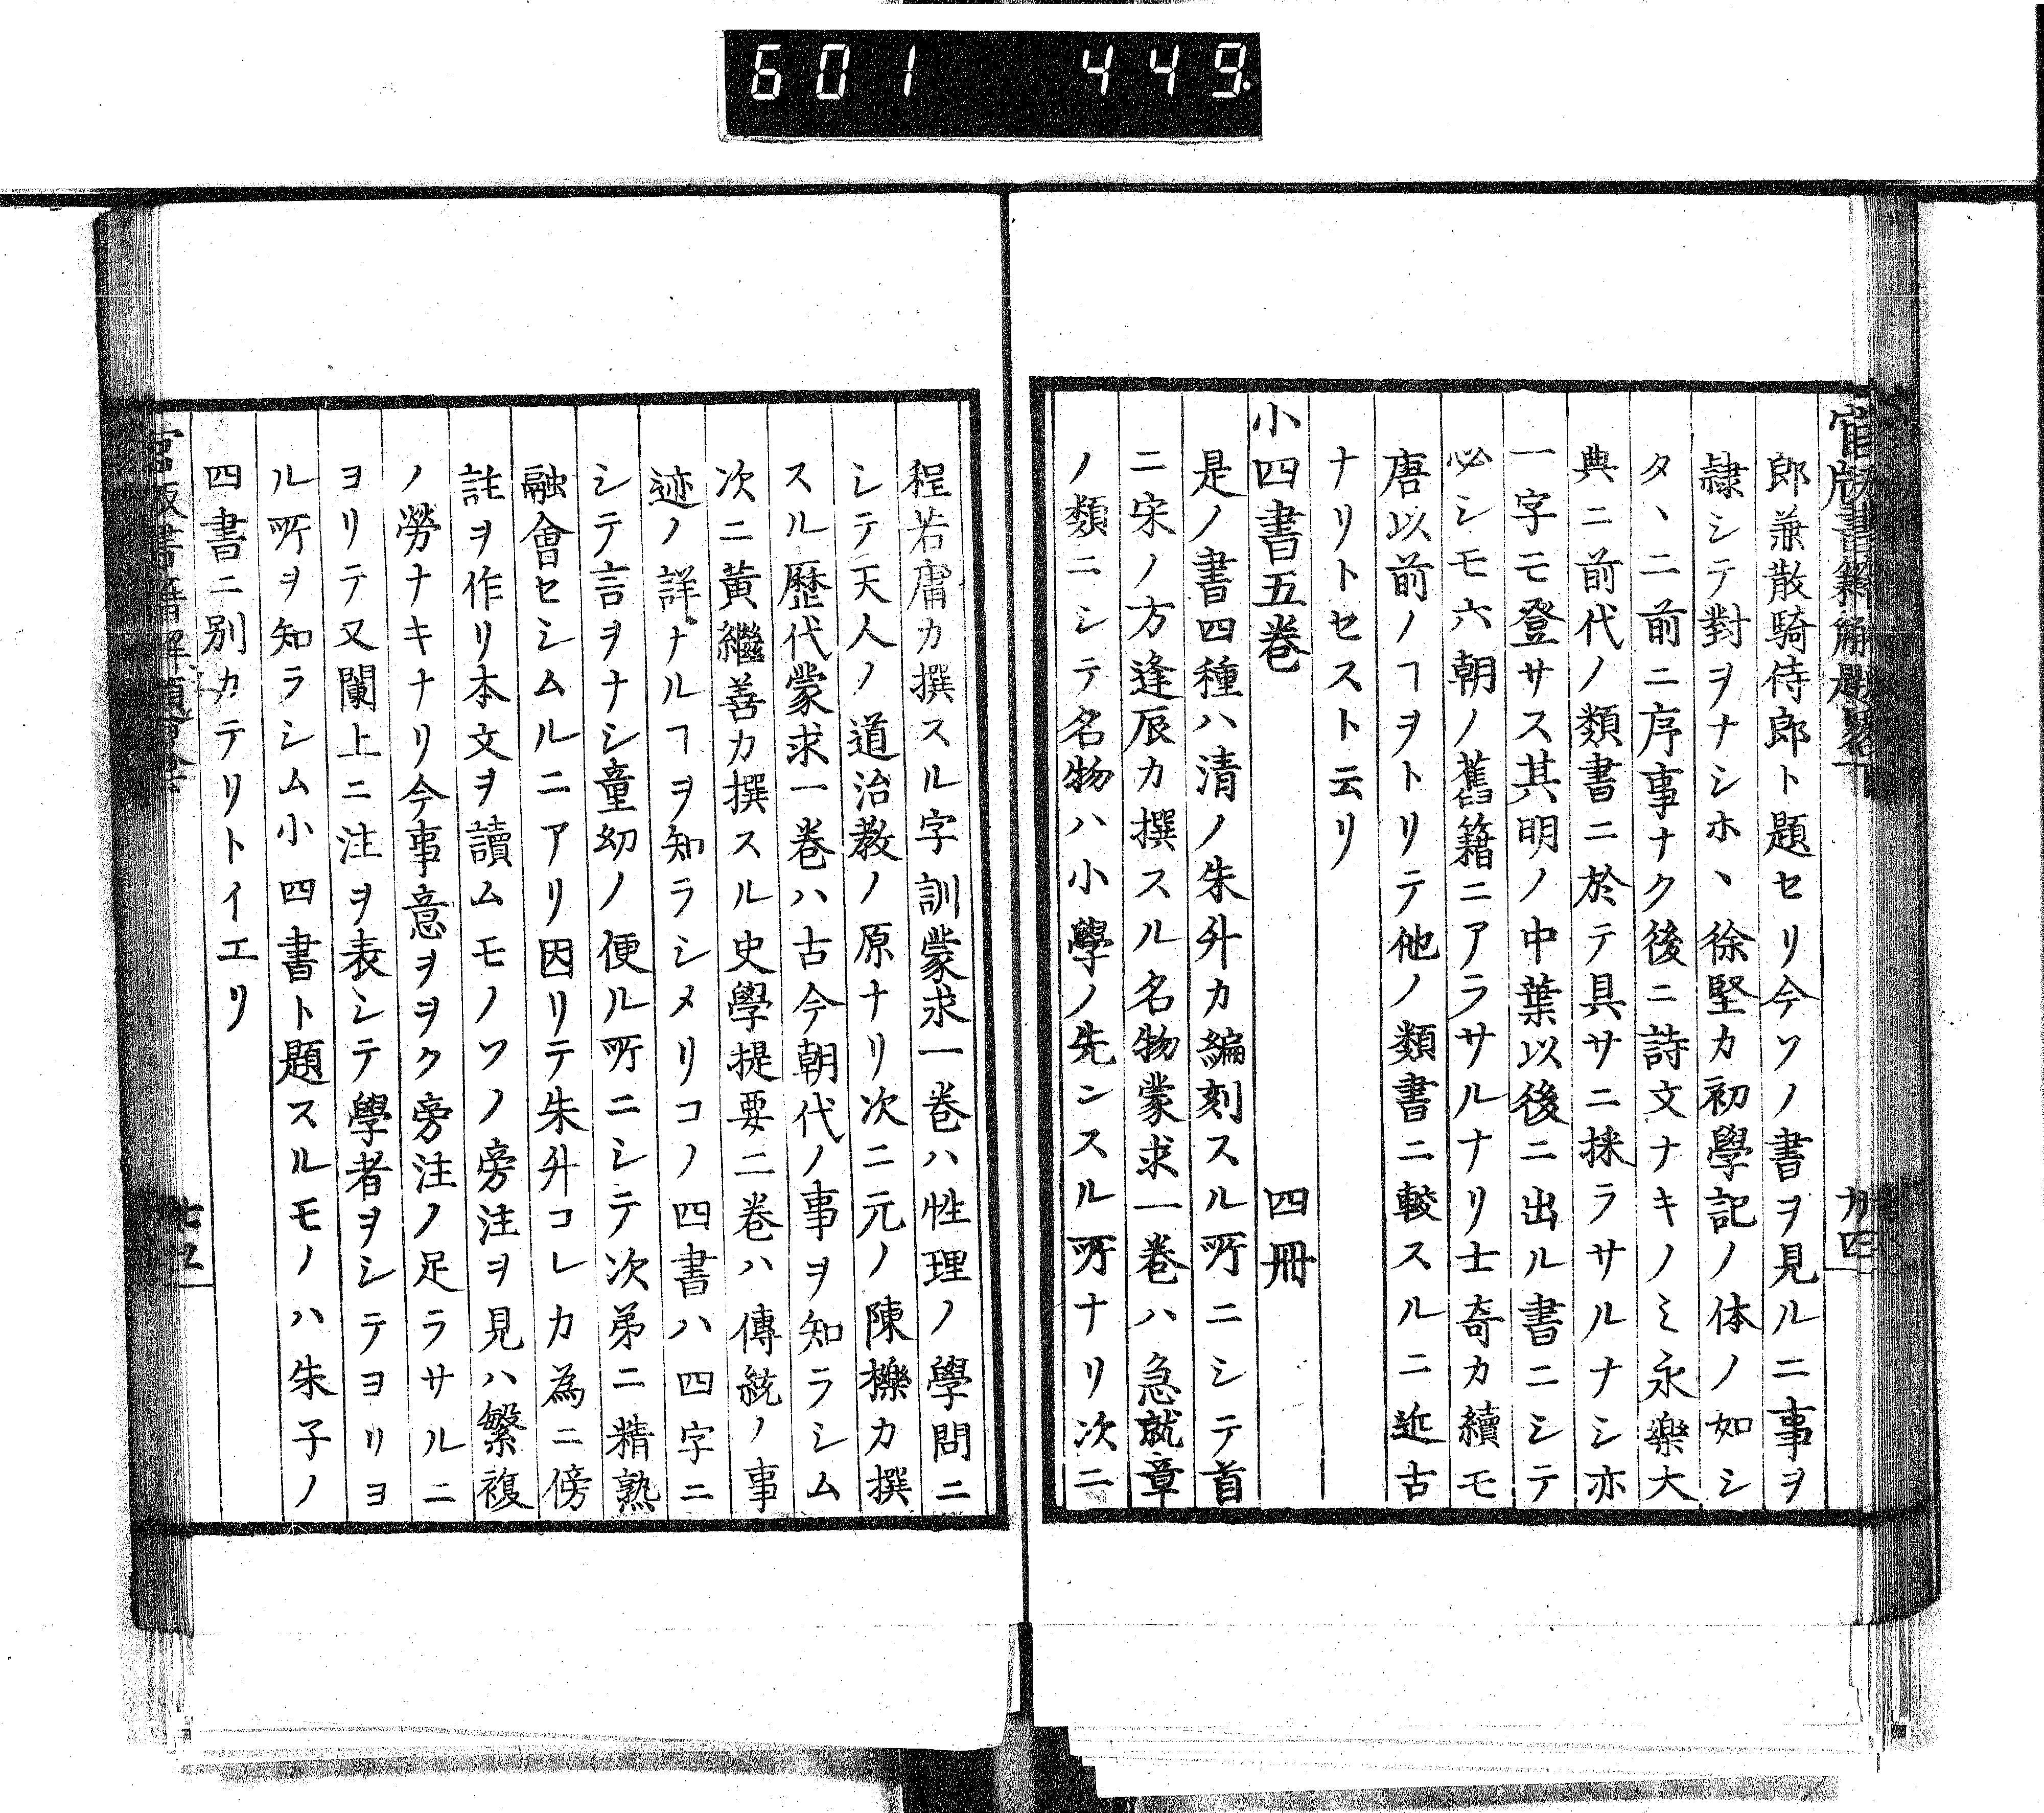 601 449
官版書籍解題畧
郎兼散騎侍郎ト題セリ今ソノ書ヲ見ルニ事ヲ
隷シテ對ヲナシホヽ徐堅カ初學記ノ体ノ如シ
タヽ二前ニ序事ナク後ニ詩文ナキノミ永樂大
典ニ前代ノ類書ニ於テ具サニ採ラサルナシ亦
一字モ登サス其明ノ中葉以後ニ出ル書ニシテ
必シモ六朝ノ舊籍ニアラサルナリ士奇カ續モ
唐以前ノヿヲトリテ他ノ類書ニ較スルニ近古
ナリトセスト云リ
小四書五巻 四冊
是ノ書四種ハ清ノ朱升カ編刻スル所ニシテ首
ニ宋ノ方逢辰カ撰スル名物蒙求一巻ハ急就章
ノ類ニシテ名物ハ小學ノ先ンスル所ナリ次ニ
程若庸カ撰スル字訓蒙求一巻ハ性理ノ學問ニ
シテ天人ノ道治教ノ原ナリ次ニ元ノ陳櫟カ撰
スル歴代蒙求一巻ハ古今朝代ノ事ヲ知ラシム
次ニ黄繼善カ撰スル史學提要二巻ハ傳統ノ事
迹ノ詳ナルヿヲ知ラシメリコノ四書ハ四字ニ
シテ言ヲナシ童幼ノ便ル所ニシテ次弟ニ精熟
融會セシムルニアリ因リテ朱升コレカ為ニ傍
註ヲ作リ本文ヲ讀ムモノソノ旁注ヲ見ハ繁複
ノ勞ナキナリ今事意ヲヲク旁注ノ足ラサルニ
ヨリテ又闌上ニ注ヲ表シテ學者ヲシテヨリヨ
ル所ヲ知ラシム小四書ト題スルモノハ朱子ノ
四書ニ別カテリトイエリ
官版書籍解題畧